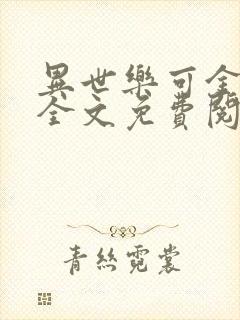 異世樂可全
全文免費閱
青絲霓裳